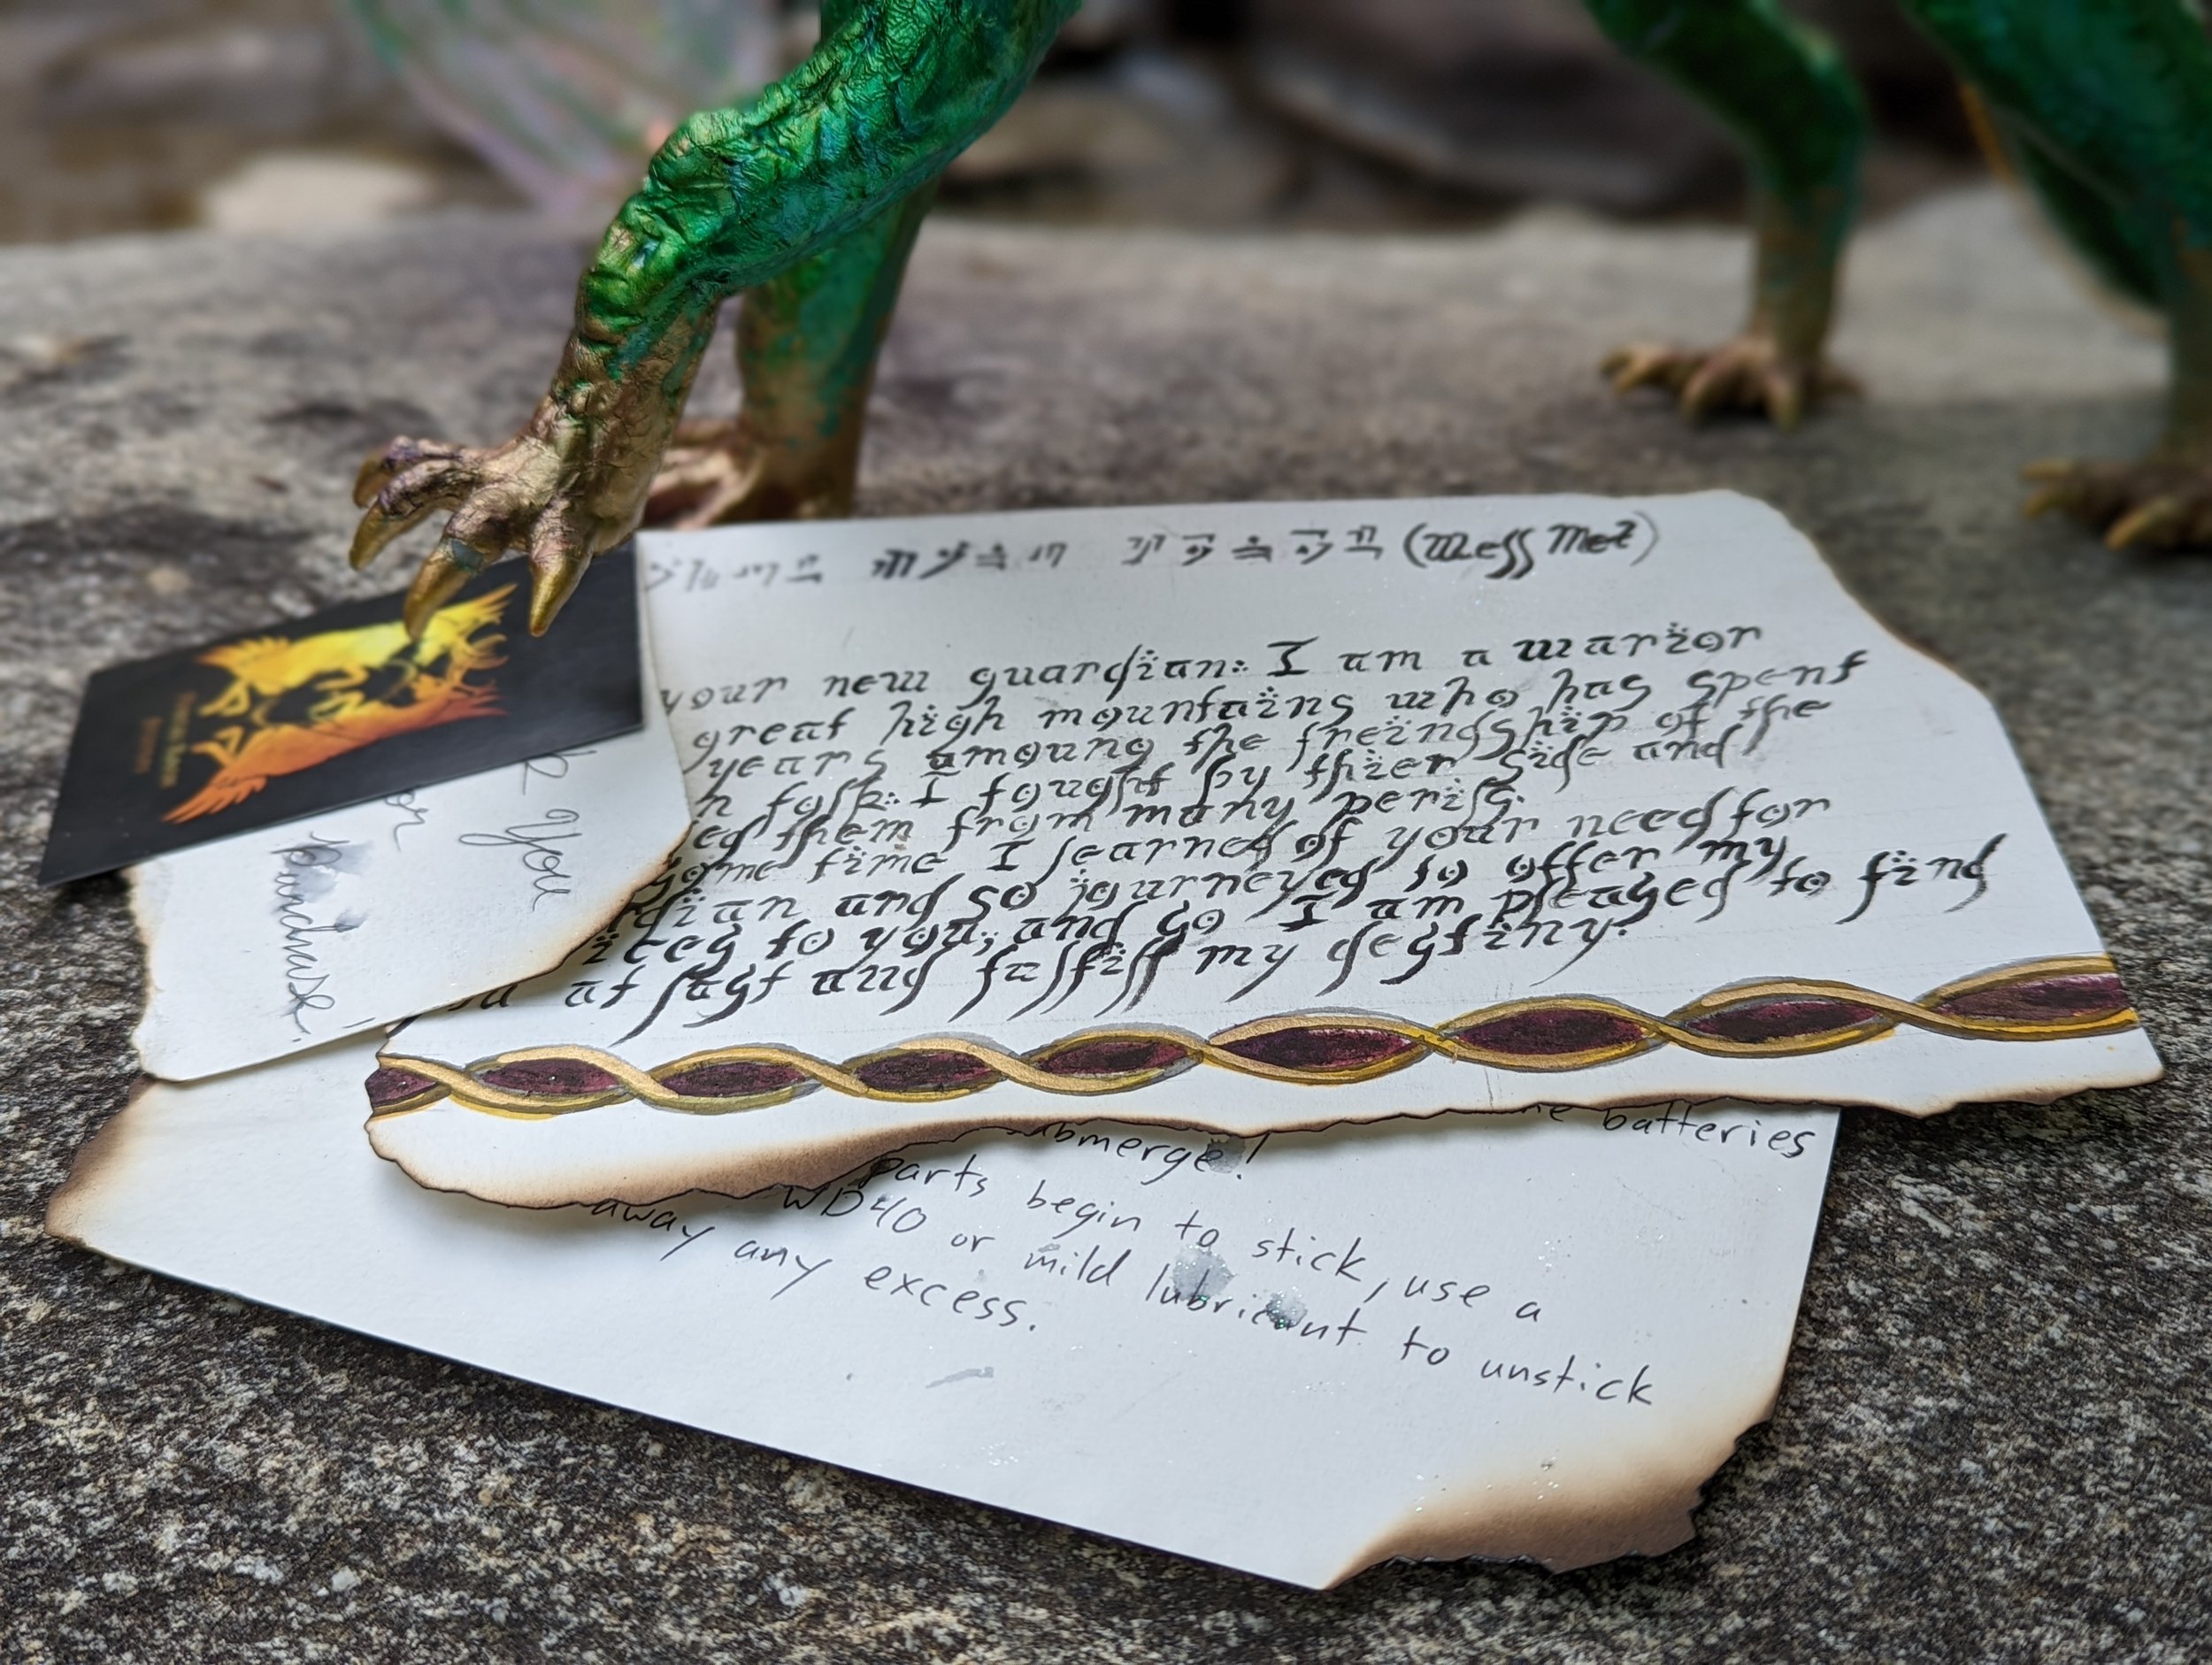 (Mess Mez)
your new guardian: I am a warior
great high mountains who has spent
years amoung the freindship of the
n folk: I fought by thier side and
ed them from many perils.
some time I learned of your need for
rdian and so journeyed to offer my
ices to you; and so I am pleased to find
at last and fulfill my destiny.
You
or
Purchase!
batteries
ubmerge!
parts begin to stick, use a
WD40 or mild lubricant to unstick
away any excess.